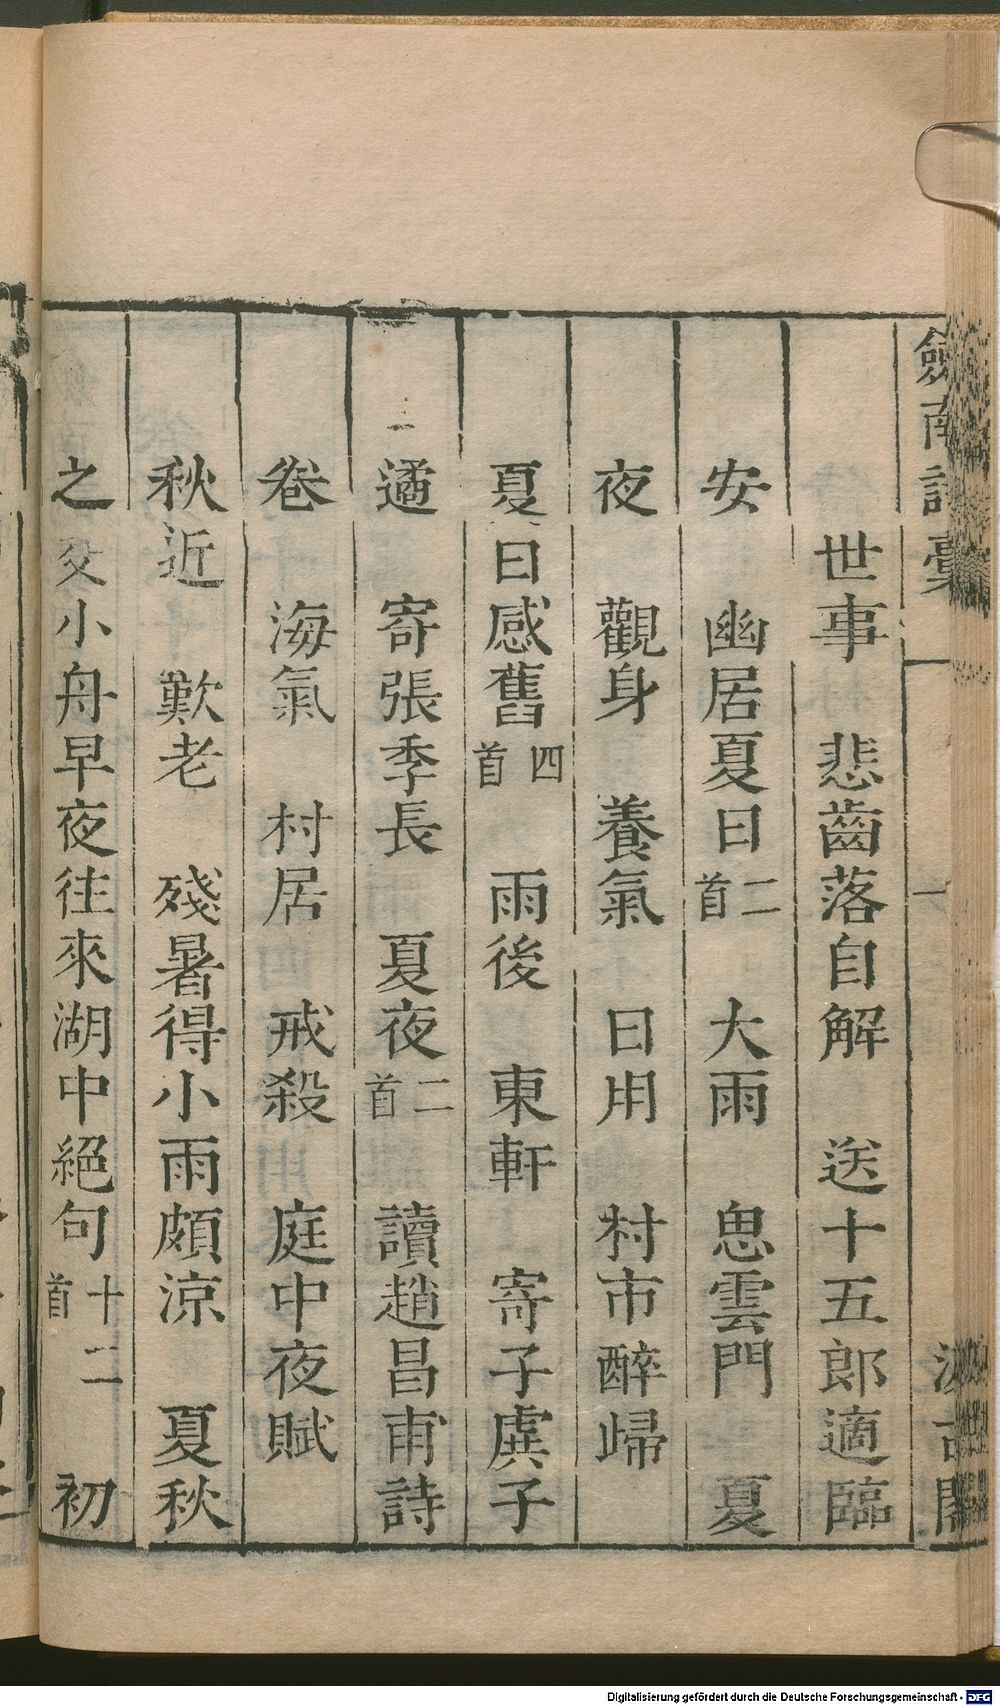 劍南詩稾 一 汲古閣
世事 悲齒落自解 送十五郎適臨
安 幽居夏日二首 大雨 思雲門 夏
夜 觀身 養氣 日用 村市醉歸
夏日感舊四首 雨後 東軒 寄子虡子
遹 寄張季長 夏夜二首 讀趙昌甫詩
卷 海氣 村居 戒殺 庭中夜賦
秋近 歎老 殘暑得小雨頗涼 夏秋
之交小舟早夜往來湖中絕句十二首 初
Digitalisierung gefördert durch die Deutsche Forschungsgemeinschaft - DFG